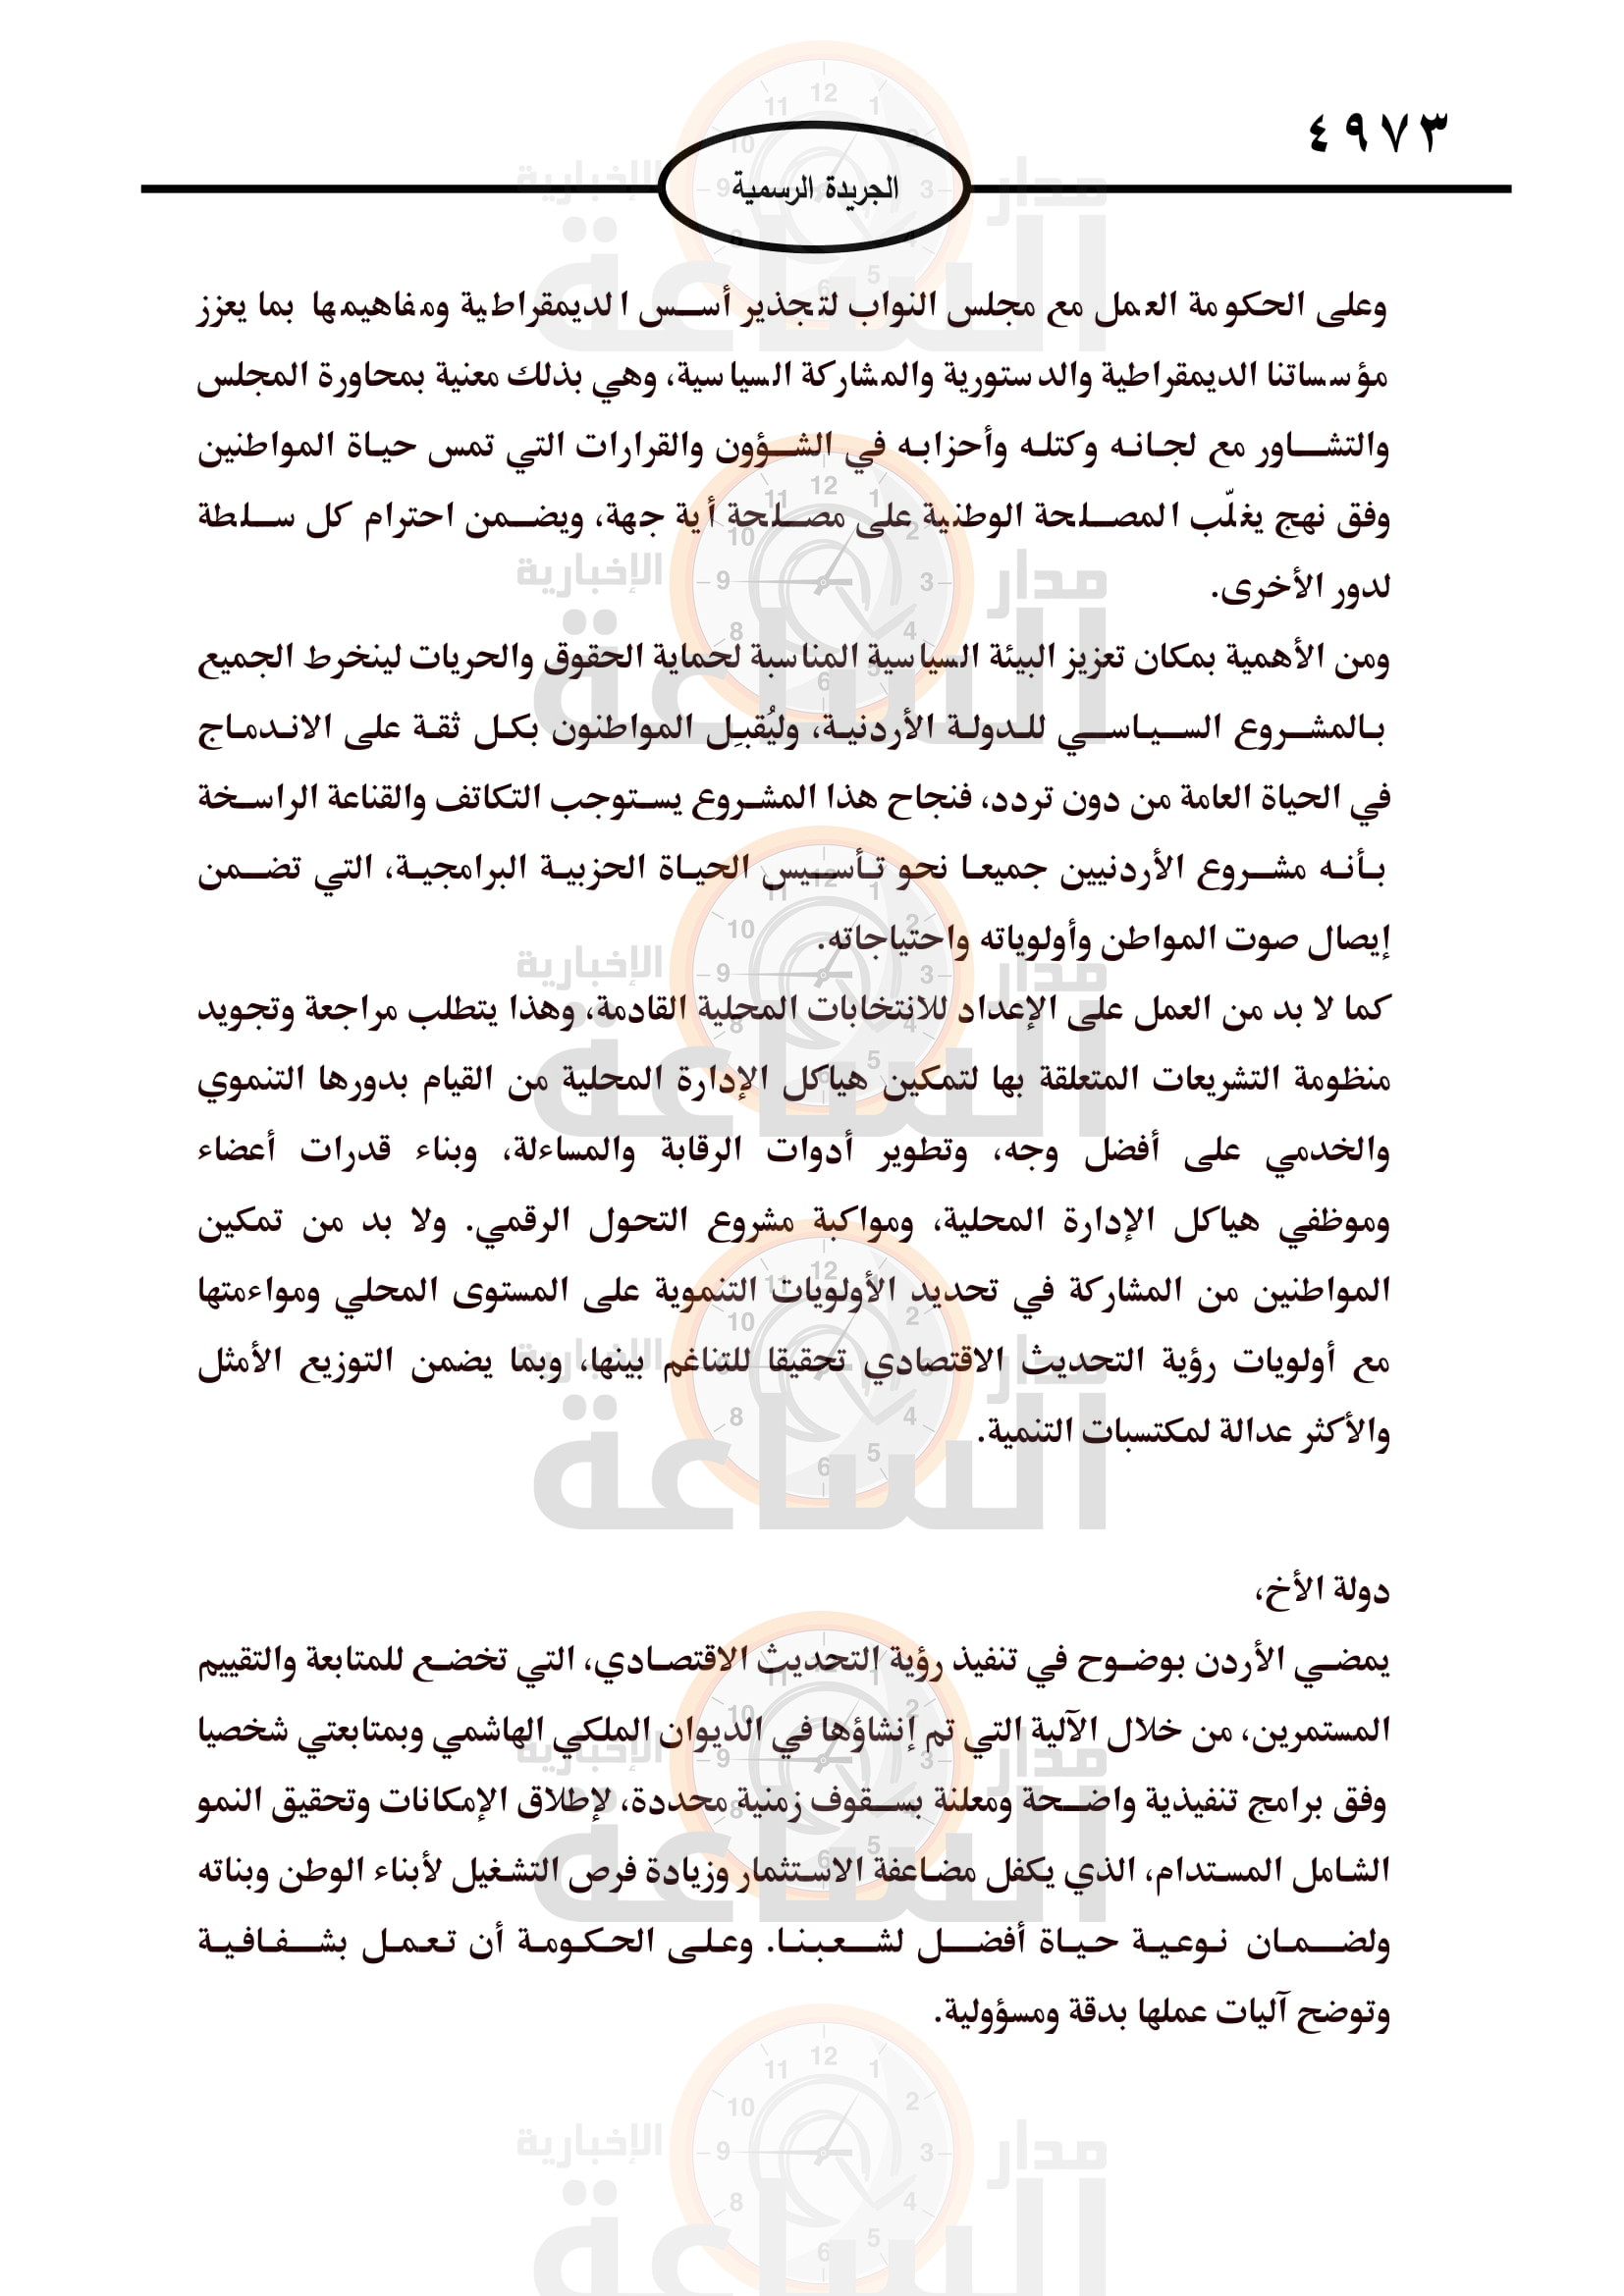 ٤٩٧٣
الجريدة الرسمية
وعلى الحكومة العمل مع مجلس النواب لتجذير أسس الديمقراطية ومفاهيمها بما يعزز
مؤسساتنا الديمقراطية والدستورية والمشاركة السياسية، وهي بذلك معنية بمحاورة المجلس
والتشاور مع لجانه وكتله وأحزابه في الشؤون والقرارات التي تمس حياة المواطنين
وفق نهج يغلّب المصلحة الوطنية على مصلحة أية جهة، ويضمن احترام كل سلطة
لدور الأخرى.
ومن الأهمية بمكان تعزيز البيئة السياسية المناسبة لحماية الحقوق والحريات لينخرط الجميع
بالمشروع السياسي للدولة الأردنية، وليُقبِل المواطنون بكل ثقة على الاندماج
في الحياة العامة من دون تردد، فنجاح هذا المشروع يستوجب التكاتف والقناعة الراسخة
بأنه مشروع الأردنيين جميعا نحو تأسيس الحياة الحزبية البرامجية، التي تضمن
إيصال صوت المواطن وأولوياته واحتياجاته.
كما لا بد من العمل على الإعداد للانتخابات المحلية القادمة، وهذا يتطلب مراجعة وتجويد
منظومة التشريعات المتعلقة بها لتمكين هياكل الإدارة المحلية من القيام بدورها التنموي
والخدمي على أفضل وجه، وتطوير أدوات الرقابة والمساءلة، وبناء قدرات أعضاء
وموظفي هياكل الإدارة المحلية، ومواكبة مشروع التحول الرقمي. ولا بد من تمكين
المواطنين من المشاركة في تحديد الأولويات التنموية على المستوى المحلي ومواءمتها
مع أولويات رؤية التحديث الاقتصادي تحقيقا للتناغم بينها، وبما يضمن التوزيع الأمثل
والأكثر عدالة لمكتسبات التنمية.
دولة الأخ،
يمضي الأردن بوضوح في تنفيذ رؤية التحديث الاقتصادي، التي تخضع للمتابعة والتقييم
المستمرين، من خلال الآلية التي تم إنشاؤها في الديوان الملكي الهاشمي وبمتابعتي شخصيا
وفق برامج تنفيذية واضحة ومعلنة بسقوف زمنية محددة، لإطلاق الإمكانات وتحقيق النمو
الشامل المستدام، الذي يكفل مضاعفة الاستثمار وزيادة فرص التشغيل لأبناء الوطن وبناته
ولضمان نوعية حياة أفضل لشعبنا. وعلى الحكومة أن تعمل بشفافية
وتوضح آليات عملها بدقة ومسؤولية.
مدار الساعة الإخبارية